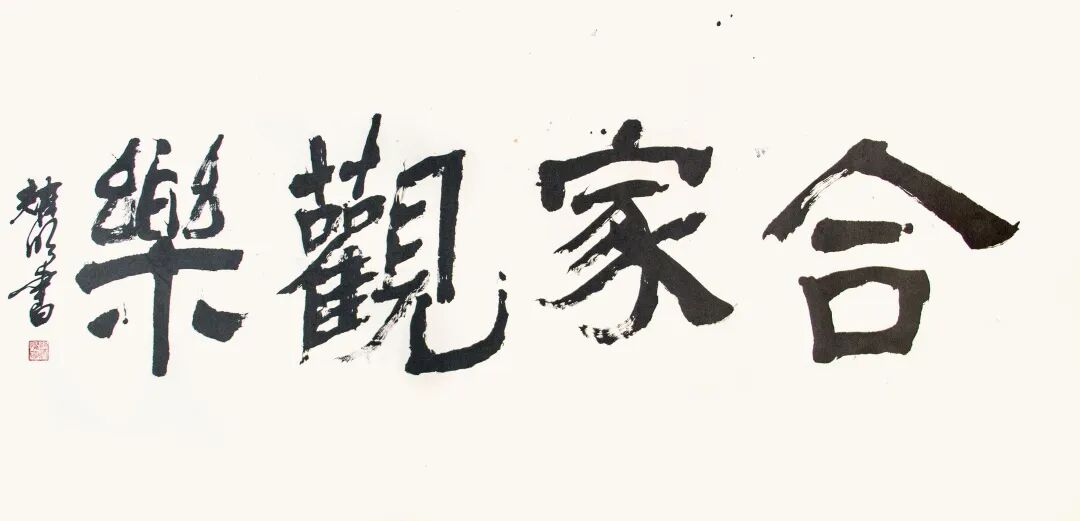 合家觀樂
明書